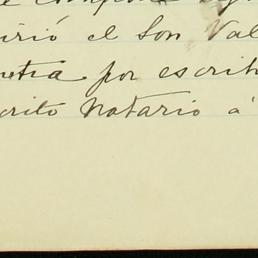 irió el Son Val
notia por escrito
crito Notario á